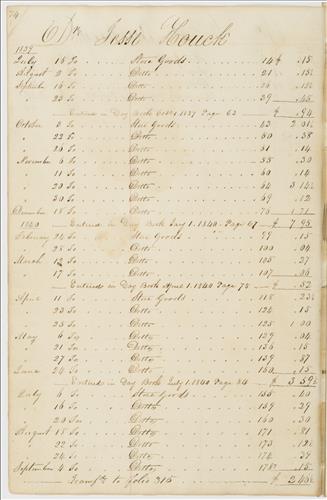 74
Dr. Jesse Houck
1839
July 18 To Store Goods 14 $ .15
August 2 To Ditto 21 .18¾
September 16 To Ditto 36
" 23 To Ditto 39 .45
Entered in Day Book Octr 1. 1839 Page 63 $ .94
October 3 To Store Goods 43 2 01
" 22 To Ditto 50 .38
" 26 To Ditto 51 .14
November 6 To Ditto 55 .30
" 11 To Ditto 60 .14
" 20 To Ditto 64 3 14
" 30 To Ditto 69 .12
December 18 To Ditto 76 1.71
1840 Entered in Day Book Jany 1. 1840. Page 67 $ 7.95
February 24 To Store Goods 99 .15
" 25 To Ditto 100 .04
March 12 To Ditto 105 .27
" 17 To Ditto 107 .06
Entered in Day Book April 1. 1840 Page 75 $ .52
April 11 To Store Goods 118 .23
" 23 To Ditto 124 .15
" 25 To Ditto 125 1 00
May 6 To Ditto 129 .04
" 21 To Ditto 136 .15
" 27 To Ditto 139 .87
June 24 To Ditto 150 .15
Entered in Day Book July 1. 1840 Page 84 $ 2 59
July 6 To Store Goods 155 .40
" 16 To Ditto 159 .29
" 20 To Ditto 160 .30
August 18 To Ditto 171 .81
" 22 To Ditto 173 .12
" 24 To Ditto 174 .39
September 4 To Ditto 178 .15
Transfd to folio 316 $ 2 46